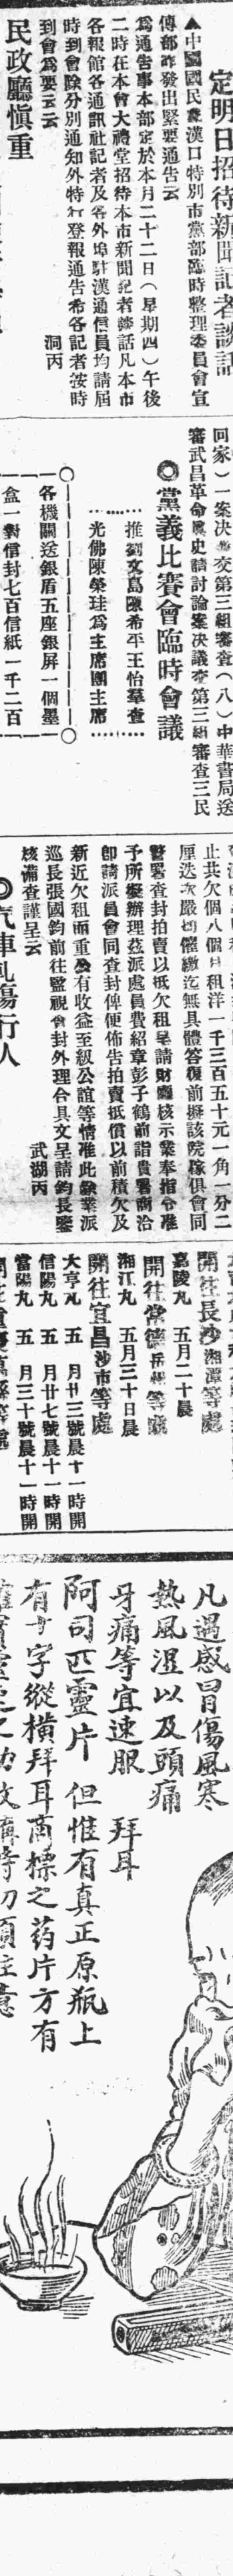 定明日招待新聞記者談話
▲中國國民黨漢口特別市黨部臨時整理委員會宣
傳部昨發出緊要通告云
爲通告事本部定於本月二十二日（星期四）午後
二時在本會大禮堂招待本市新聞記者談話凡本市
各報館各通訊社記者及各外埠駐漢通信員均請屆
時到會除分別通知外特行登報通告希各記者按時
到會爲要云云
洞丙
民政廳慎重
回家）一案決議交第三組審查（八）中華書局送
審武昌革命眞史請討論案决議交第三組審查三民
◎黨義比賽會臨時會議
推劉文島陳希平王怡羣查
光佛陳榮珪爲主席團主席
各機關送銀盾五座銀屏一個墨
盒一對信封七百信紙一千二百
止共欠個八個月租洋一千三百五十元一角一分二
厘迭次嚴切催繳迄無具體答復前擬該院傢俱會同
警署查封拍賣以抵欠租呈請財廳核示業奉指令准
予所擬辦理茲派處員費紹章彭子鶴前詣貴署商洽
卽請派員會同查封俾便佈告拍賣抵償以前積欠及
新近欠租而重公有收益至級公誼等情准此餘業派
巡長張國鈞前往監視會封外理合具文呈請鈞長鑒
核備查謹呈云
武湖丙
◎汽車亂傷行人
開往長沙湘潭等處
嘉陵丸 五月二十晨
開往常德岳州等處
湘江丸 五月三十日晨
開往宜昌沙市等處
大亨丸 五 月廿三號晨十一時開
信陽丸 五 月廿七號晨十一時開
當陽丸 五 月三十號晨十一時開
凡遇感冒傷風寒
熱風溼以及頭痛
牙痛等宜速服 拜耳
阿司匹靈片 但惟有真正原瓶上
有十字縱橫拜耳商標之药片方有